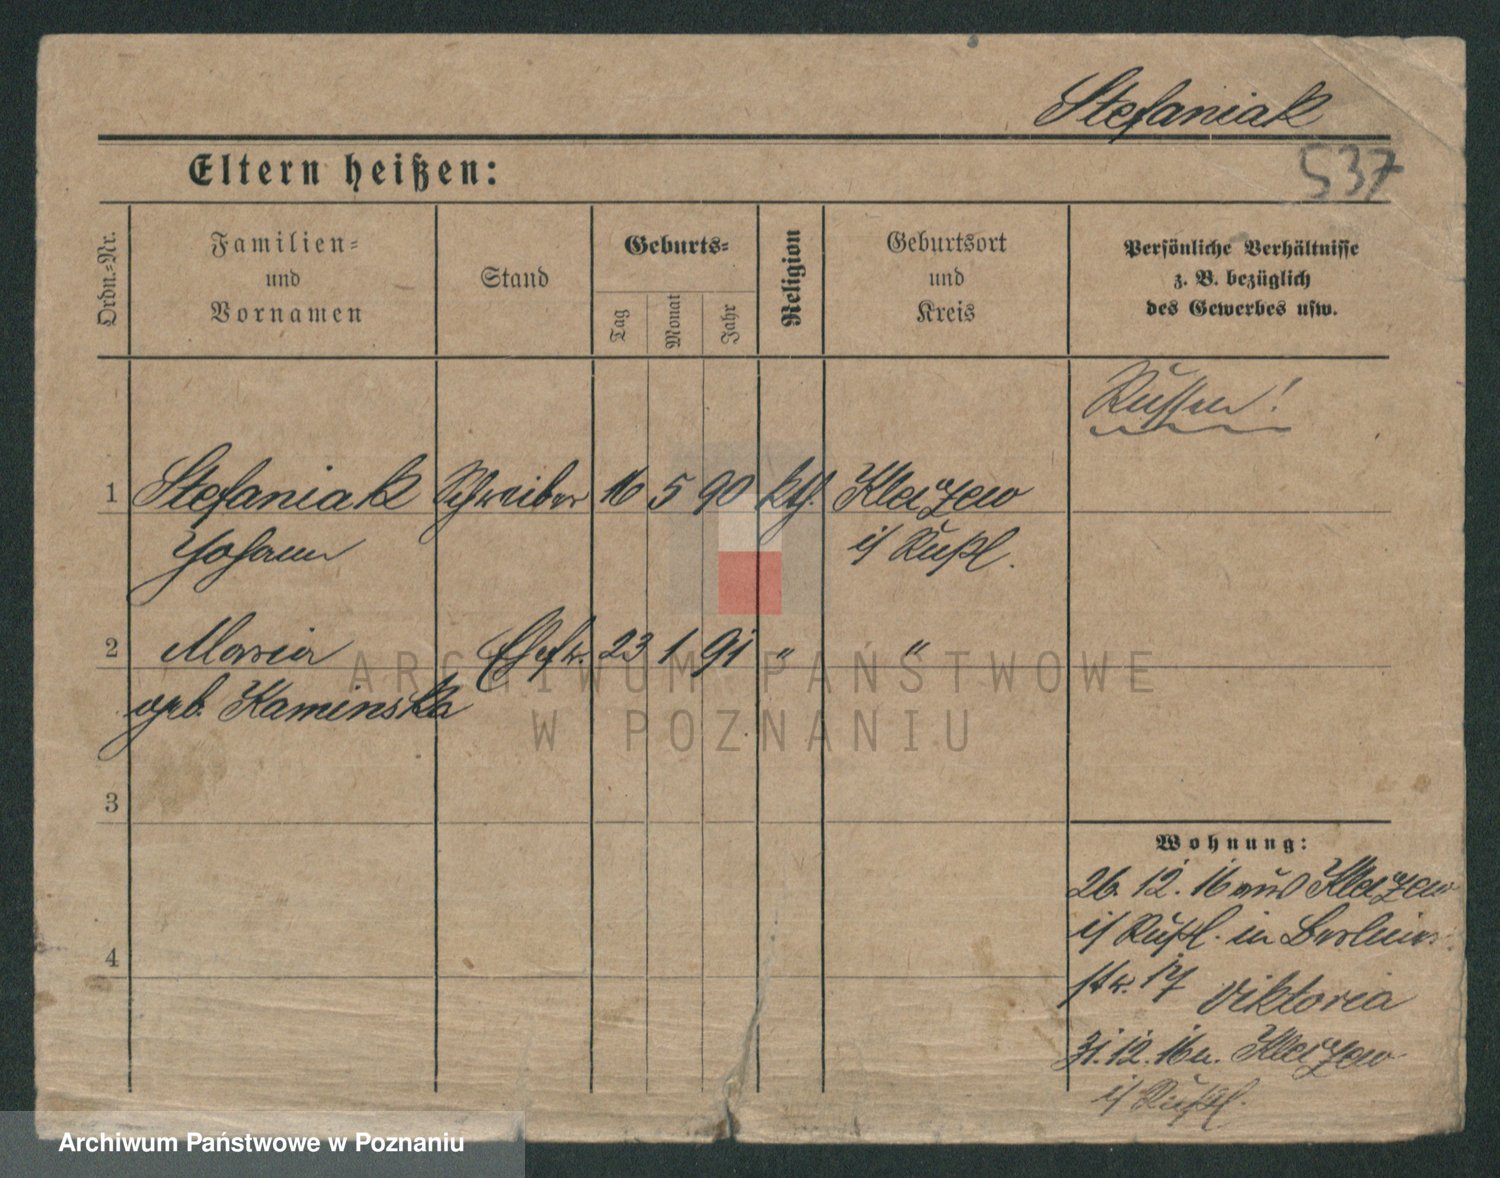 Stefaniak
537
Eltern heißen:
Ordn.-Nr.
Familien-
und
Vornamen
Stand
Geburts-
Tag
Monat
Jahr
Religion
Geburtsort
und
Kreis
Persönliche Verhältnisse
z. B. bezüglich
des Gewerbes usw.
Russen!
1 Stefaniak Schreiber 16 5 90 kth. Kleczew
Johann i/ Rußl.
2 Maria Ehefr. 23 1 91 " "
geb. Kaminska
3
4
Wohnung:
26.12.16 aus Kleczew
i/ Rußl. in Berliner
str. 17 Viktoria
31.12.16 n. Kleczew
i/ Rußl.
ARCHIWUM PAŃSTWOWE
W POZNANIU
Archiwum Państwowe w Poznaniu